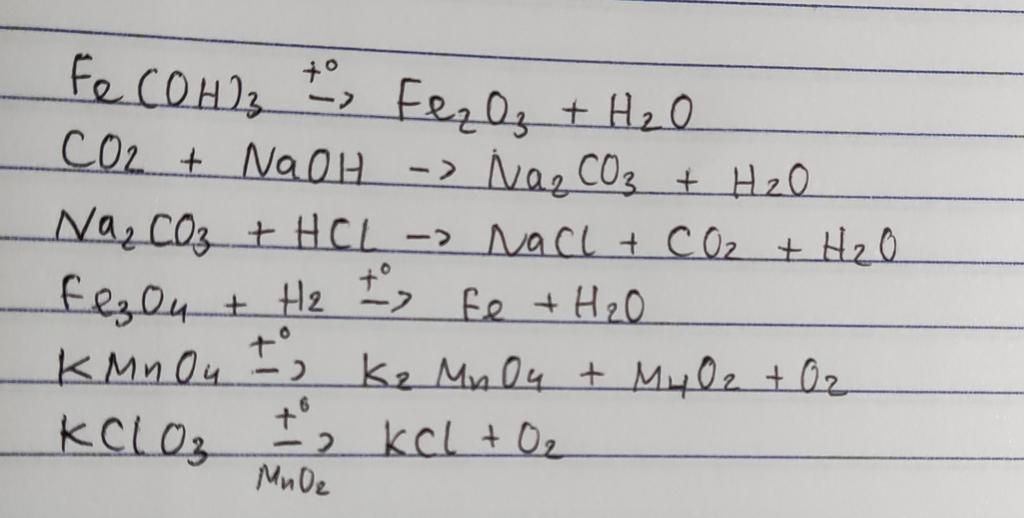 Fe(OH)₃ →(t°) Fe₂O₃ + H₂O
CO₂ + NaOH → Na₂CO₃ + H₂O
Na₂CO₃ + HCl → NaCl + CO₂ + H₂O
Fe₃O₄ + H₂ →(t°) Fe + H₂O
KMnO₄ →(t°) K₂MnO₄ + MnO₂ + O₂
KClO₃ →(t°) KCl + O₂
MnO₂